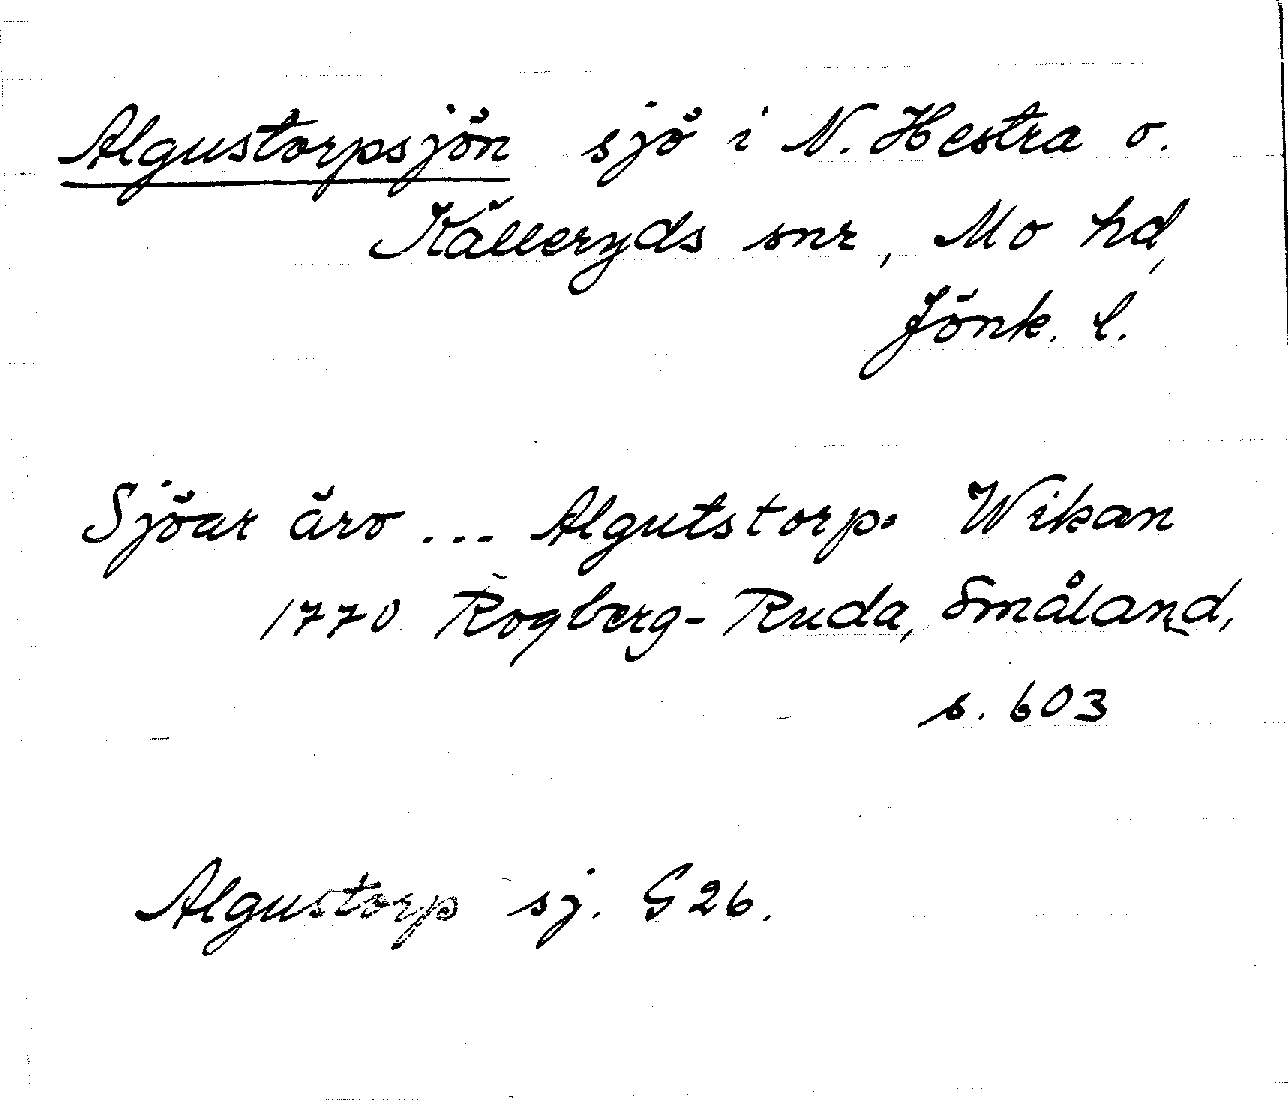 Algustorpsjön sjö i N. Hestra o.
Källeryds snr, Mo hd,
Jönk. l.
Sjöar äro ... Algutstorps Wikan
1770 Rogberg-Ruda, Småland,
s. 603
Algustorp sj. G26.